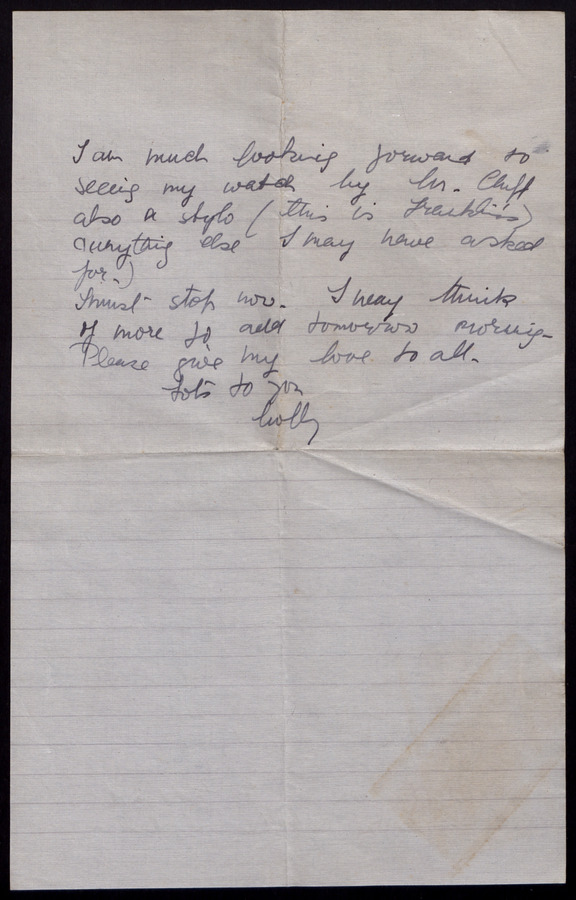 I am much looking forward to
seeing my watch by Mr. Cluff
also a stylo (this is Franklin's)
anything else I may have asked
for.)
I must stop now. I may think
of more to add tomorrow morning.
Please give my love to all.
Lots to you
Molly